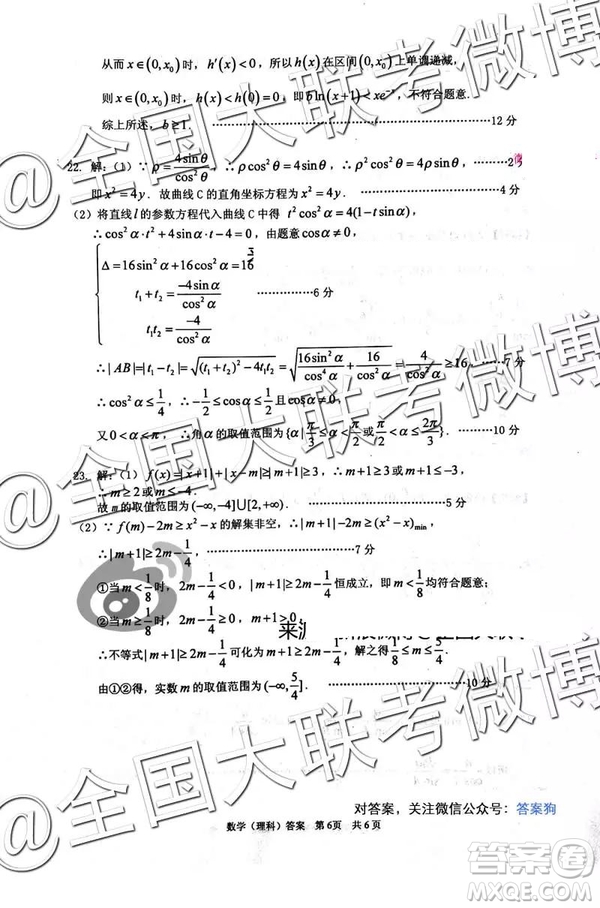 从而x∈(0,x₀)时，h′(x)<0，所以h(x)在区间(0,x₀)上单调递减，
则x∈(0,x₀)时，h(x)<h(0)=0，即bln(x+1)<xe⁻ˣ，不符合题意．
综上所述，b≥1． ………………12 分
22. 解：（1）∵ρ=4sinθ/cos²θ，∴ρcos²θ=4sinθ，∴ρ²cos²θ=4ρsinθ，………2分
即x²=4y．故曲线 C 的直角坐标方程为x²=4y． ………………4 分
（2）将直线l的参数方程代入曲线 C 中得 t²cos²α=4(1-tsinα)
∴cos²α·t²+4sinα·t-4=0，由题意cosα≠0，
Δ=16sin²α+16cos²α=16
t₁+t₂=-4sinα/cos²α ……………6 分
t₁t₂=-4/cos²α
∴|AB|=|t₁-t₂|=√((t₁+t₂)²-4t₁t₂)=√(16sin²α/cos⁴α+16/cos²α)=4/cos²α≥16，……7分
∴cos²α≤1/4，∴-1/2≤cosα≤1/2且cosα≠0，
又0<α<π，∴角α的取值范围为{α|π/3≤α<π/2或π/2<α≤2π/3}．………10 分
23. 解：（1）f(x)=|x+1|+|x-m|≥|m+1|≥3，∴m+1≥3或m+1≤-3，
∴m≥2或m≤-4．
故m的取值范围为(-∞,-4]∪[2,+∞)． ………………5 分
（2）∵f(m)-2m≥x²-x的解集非空，∴|m+1|-2m≥(x²-x)min，
∴|m+1|≥2m-1/4，………………7 分
①当m<1/8时，2m-1/4<0，|m+1|≥2m-1/4恒成立，即m<1/8均符合题意；
②当m≥1/8时，2m-1/4≥0，
∴不等式|m+1|≥2m-1/4可化为m+1≥2m-1/4，解之得1/8≤m≤5/4．
由①②得，实数m的取值范围为(-∞,5/4]． ………………10 分
对答案，关注微信公众号：答案狗
数学（理科）答案 第6页 共6页
@全国大联考微博
@全国大联考微博
@全国大联考微博
答案圈
MXQE.COM